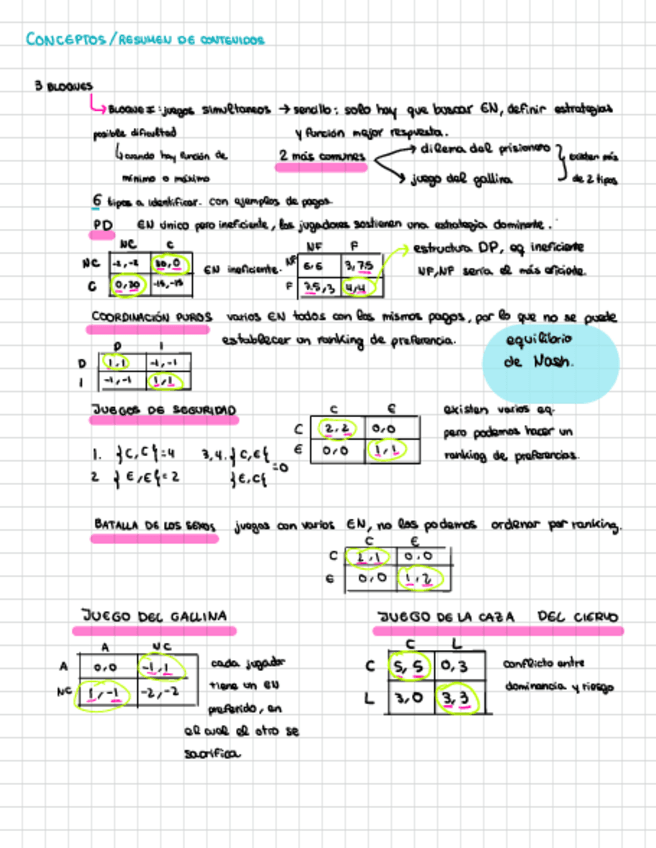 CONCEPTOS/RESUMEN DE CONTENIDOS
3 BLOQUES
BLOQUE I: juegos simultaneos → sencillo: solo hay que buscar EN, definir estrategias
posible dificultad y función mejor respuesta.
cuando hay función de
mínimo o máximo
2 más comunes
dilema del prisionero
juego del gallina
existen más
de 2 tipos
6 tipos a identificar. con ejemplos de pagos.
PD EN único pero ineficiente, los jugadores sostienen una estrategia dominante.
NC C
NC -2,-2 30,0
C 0,30 -15,-15
EN ineficiente.
NF F
NF 6,6 3,7.5
F 7.5,3 4,4
estructura DP, eq ineficiente
NF,NF sería el más eficiente.
COORDINACIÓN PUROS varios EN todos con los mismos pagos, por lo que no se puede
establecer un ranking de preferencia.
D I
D 1,1 -1,-1
I -1,-1 1,1
equilibrio
de Nash.
JUEGOS DE SEGURIDAD
1. {C,C}=4 3,4.{C,E}
2 {E,E}=2 {E,C} =0
C E
C 2,2 0,0
E 0,0 1,1
existen varios eq.
pero podemos hacer un
ranking de preferencias.
BATALLA DE LOS SEXOS juegos con varios EN, no los podemos ordenar por ranking.
C E
C 2,1 0,0
E 0,0 1,2
JUEGO DEL GALLINA
A NC
A 0,0 -1,1
NC 1,-1 -2,-2
cada jugador
tiene un EN
preferido, en
el cual el otro se
sacrifica
JUEGO DE LA CAZA DEL CIERVO
C L
C 5,5 0,3
L 3,0 3,3
conflicto entre
dominancia y riesgo